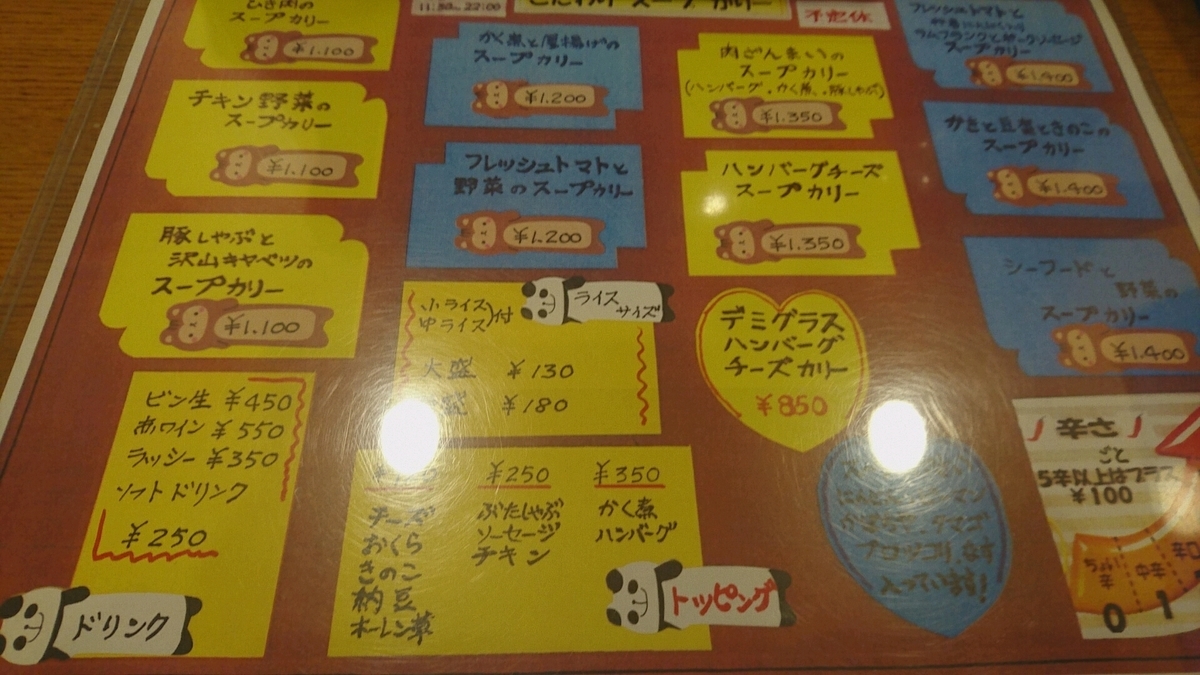 ひき肉の
スープカリー
¥1.100
チキン野菜の
スープカリー
¥1.100
豚しゃぶと
沢山キャベツの
スープカリー
¥1.100
11:30~22:00
こだわりスープカリー
不定休
かく煮と厚揚げの
スープカリー
¥1.200
フレッシュトマトと
野菜のスープカリー
¥1.200
肉ざんまいの
スープカリー
(ハンバーグ、かく煮、豚しゃぶ)
¥1.350
ハンバーグチーズ
スープカリー
¥1.350
フレッシュトマトと
ラムフランクとポークソーセージ
スープカリー
¥1.400
かきと豆腐ときのこの
スープカリー
¥1.400
シーフードと
野菜の
スープカリー
¥1.400
ライス
サイズ
小ライス
中ライス
付
大盛 ¥130
¥180
デミグラス
ハンバーグ
チーズカリー
¥850
ビン生 ¥450
赤ワイン ¥550
ラッシー ¥350
ソフトドリンク
¥250
ドリンク
チーズ
おくら
きのこ
納豆
ホーレン草
¥250
ぶたしゃぶ
ソーセージ
チキン
¥350
かく煮
ハンバーグ
トッピング
ブロッコリ
入っています!
辛さ
ごと
5辛以上はプラス
¥100
中辛
辛口
0
1